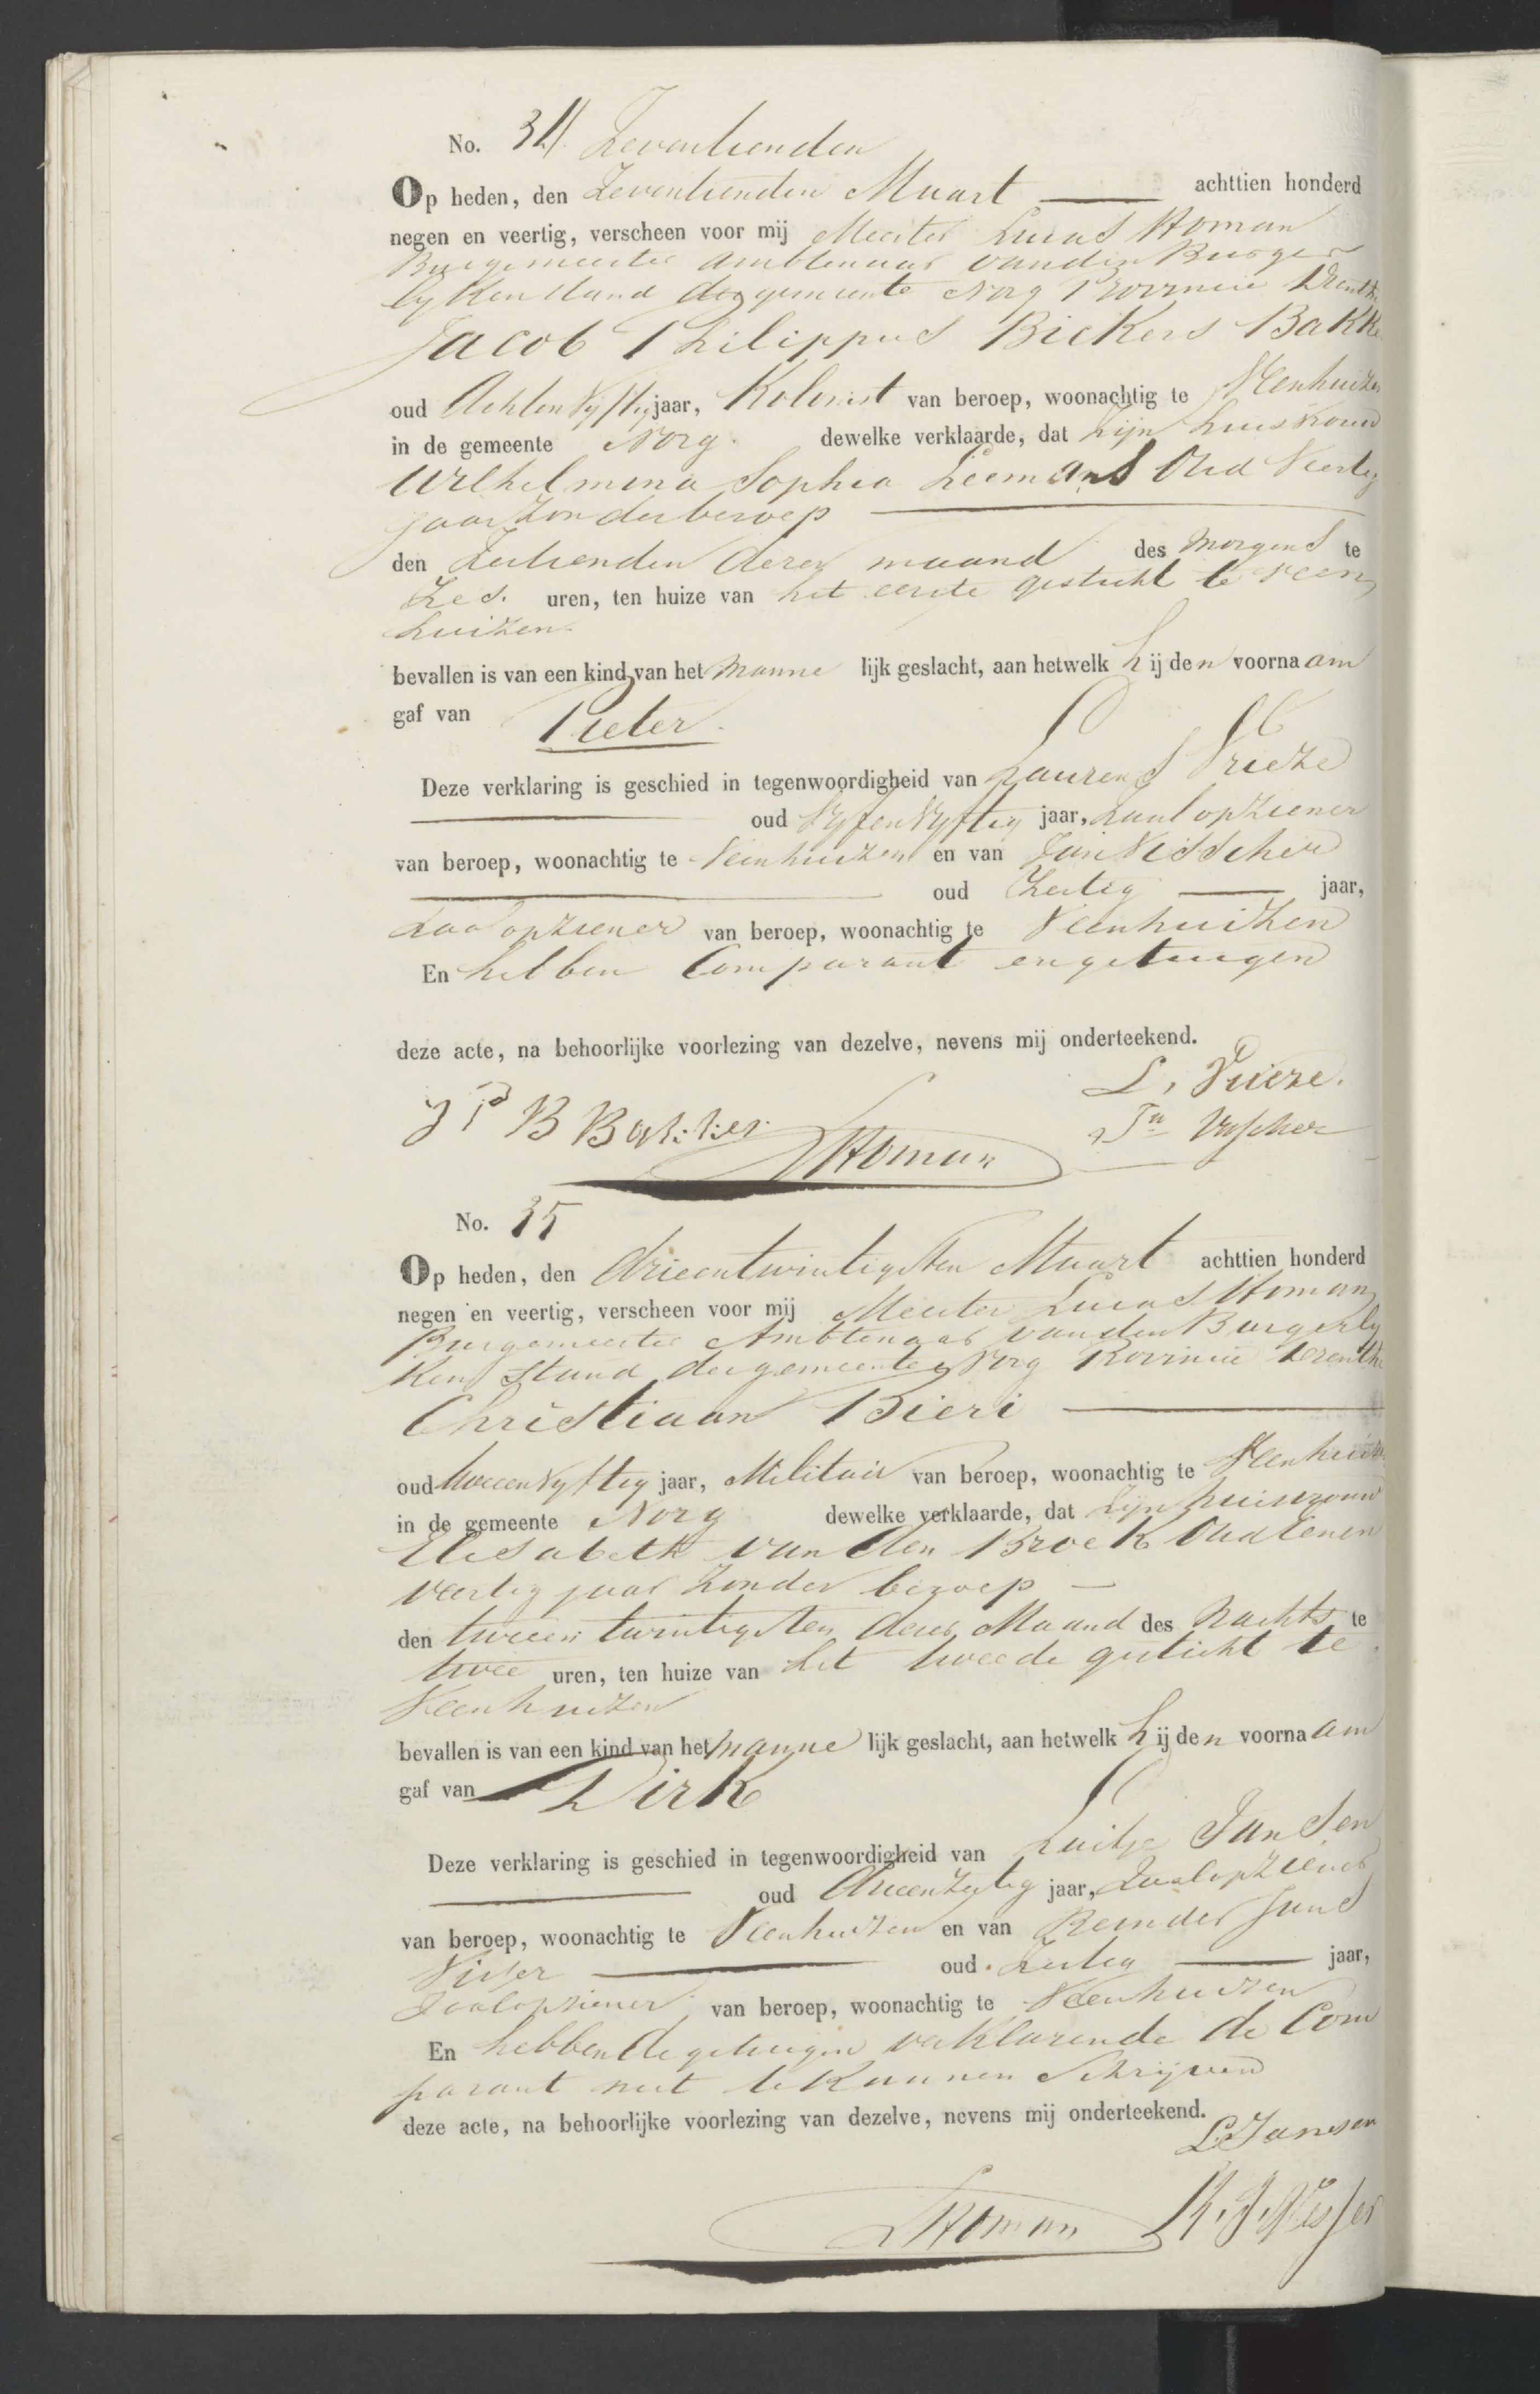 No. 34 Zeventienden
Op heden, den Zeventienden Maart achttien honderd
negen en veertig, verscheen voor mij Meester Lucas Homan
Burgemeester Ambtenaar van den Burger
lyken stand der gemeente Norg Provincie Drenthe
Jacob Philippus Bickers Bakke
oud Achten Vyftig jaar, Kolonist van beroep, woonachtig te Veenhuizen
in de gemeente Norg. dewelke verklaarde, dat zijn huisvrouw
Wilhelmina Sophia Leemans Oud Veertig
jaar zonder beroep
den Zestienden dezer maand des morgens te
Zes. uren, ten huize van het eerste gesticht te Veen
huizen.
bevallen is van een kind van het manne lijk geslacht, aan hetwelk hij den voornaam
gaf van Pieter.
Deze verklaring is geschied in tegenwoordigheid van Laurens Vrieze
oud Vyfen Vyftig jaar, Zaal opziener
van beroep, woonachtig te Veenhuizen en van Jan Visscher
oud Zestig jaar,
Zaal opziener van beroep, woonachtig te Veenhuizen
En hebben Comparant en getuigen
deze acte, na behoorlijke voorlezing van dezelve, nevens mij onderteekend.
L. Vrieze.
J P B Bakker
Jn Visscher
LHoman
No. 35
Op heden, den drieentwintigsten Maart achttien honderd
negen en veertig, verscheen voor mij Meester Lucas Homan
Burgemeester Ambtenaar van den Burgerly
ken stand der gemeente Norg Provincie Drenthe
Christiaan Bieri
oud tweeen Vyftig jaar, Militair van beroep, woonachtig te Veenhuizen
in de gemeente Norg dewelke verklaarde, dat Zijn huisvrouw
Elisabeth van den Broek Oud eenen
veertig jaar zonder beroep
den tweeen twintigsten dezer Maand des Nachts te
twee uren, ten huize van het tweede gesticht te
Veenhuizen
bevallen is van een kind van het manne lijk geslacht, aan hetwelk hij den voornaam
gaf van Dirk
Deze verklaring is geschied in tegenwoordigheid van Luitje Jansen
oud drieenzestig jaar, Zaalopziener
van beroep, woonachtig te Veenhuizen en van Reinder Jans
Visser oud Zestig jaar,
Zaalopziener van beroep, woonachtig te Veenhuizen
En hebben de getuigen verklarende de Com
parant niet te kunnen Schrijven
deze acte, na behoorlijke voorlezing van dezelve, nevens mij onderteekend.
L Jansen
LHoman R. J. Visser